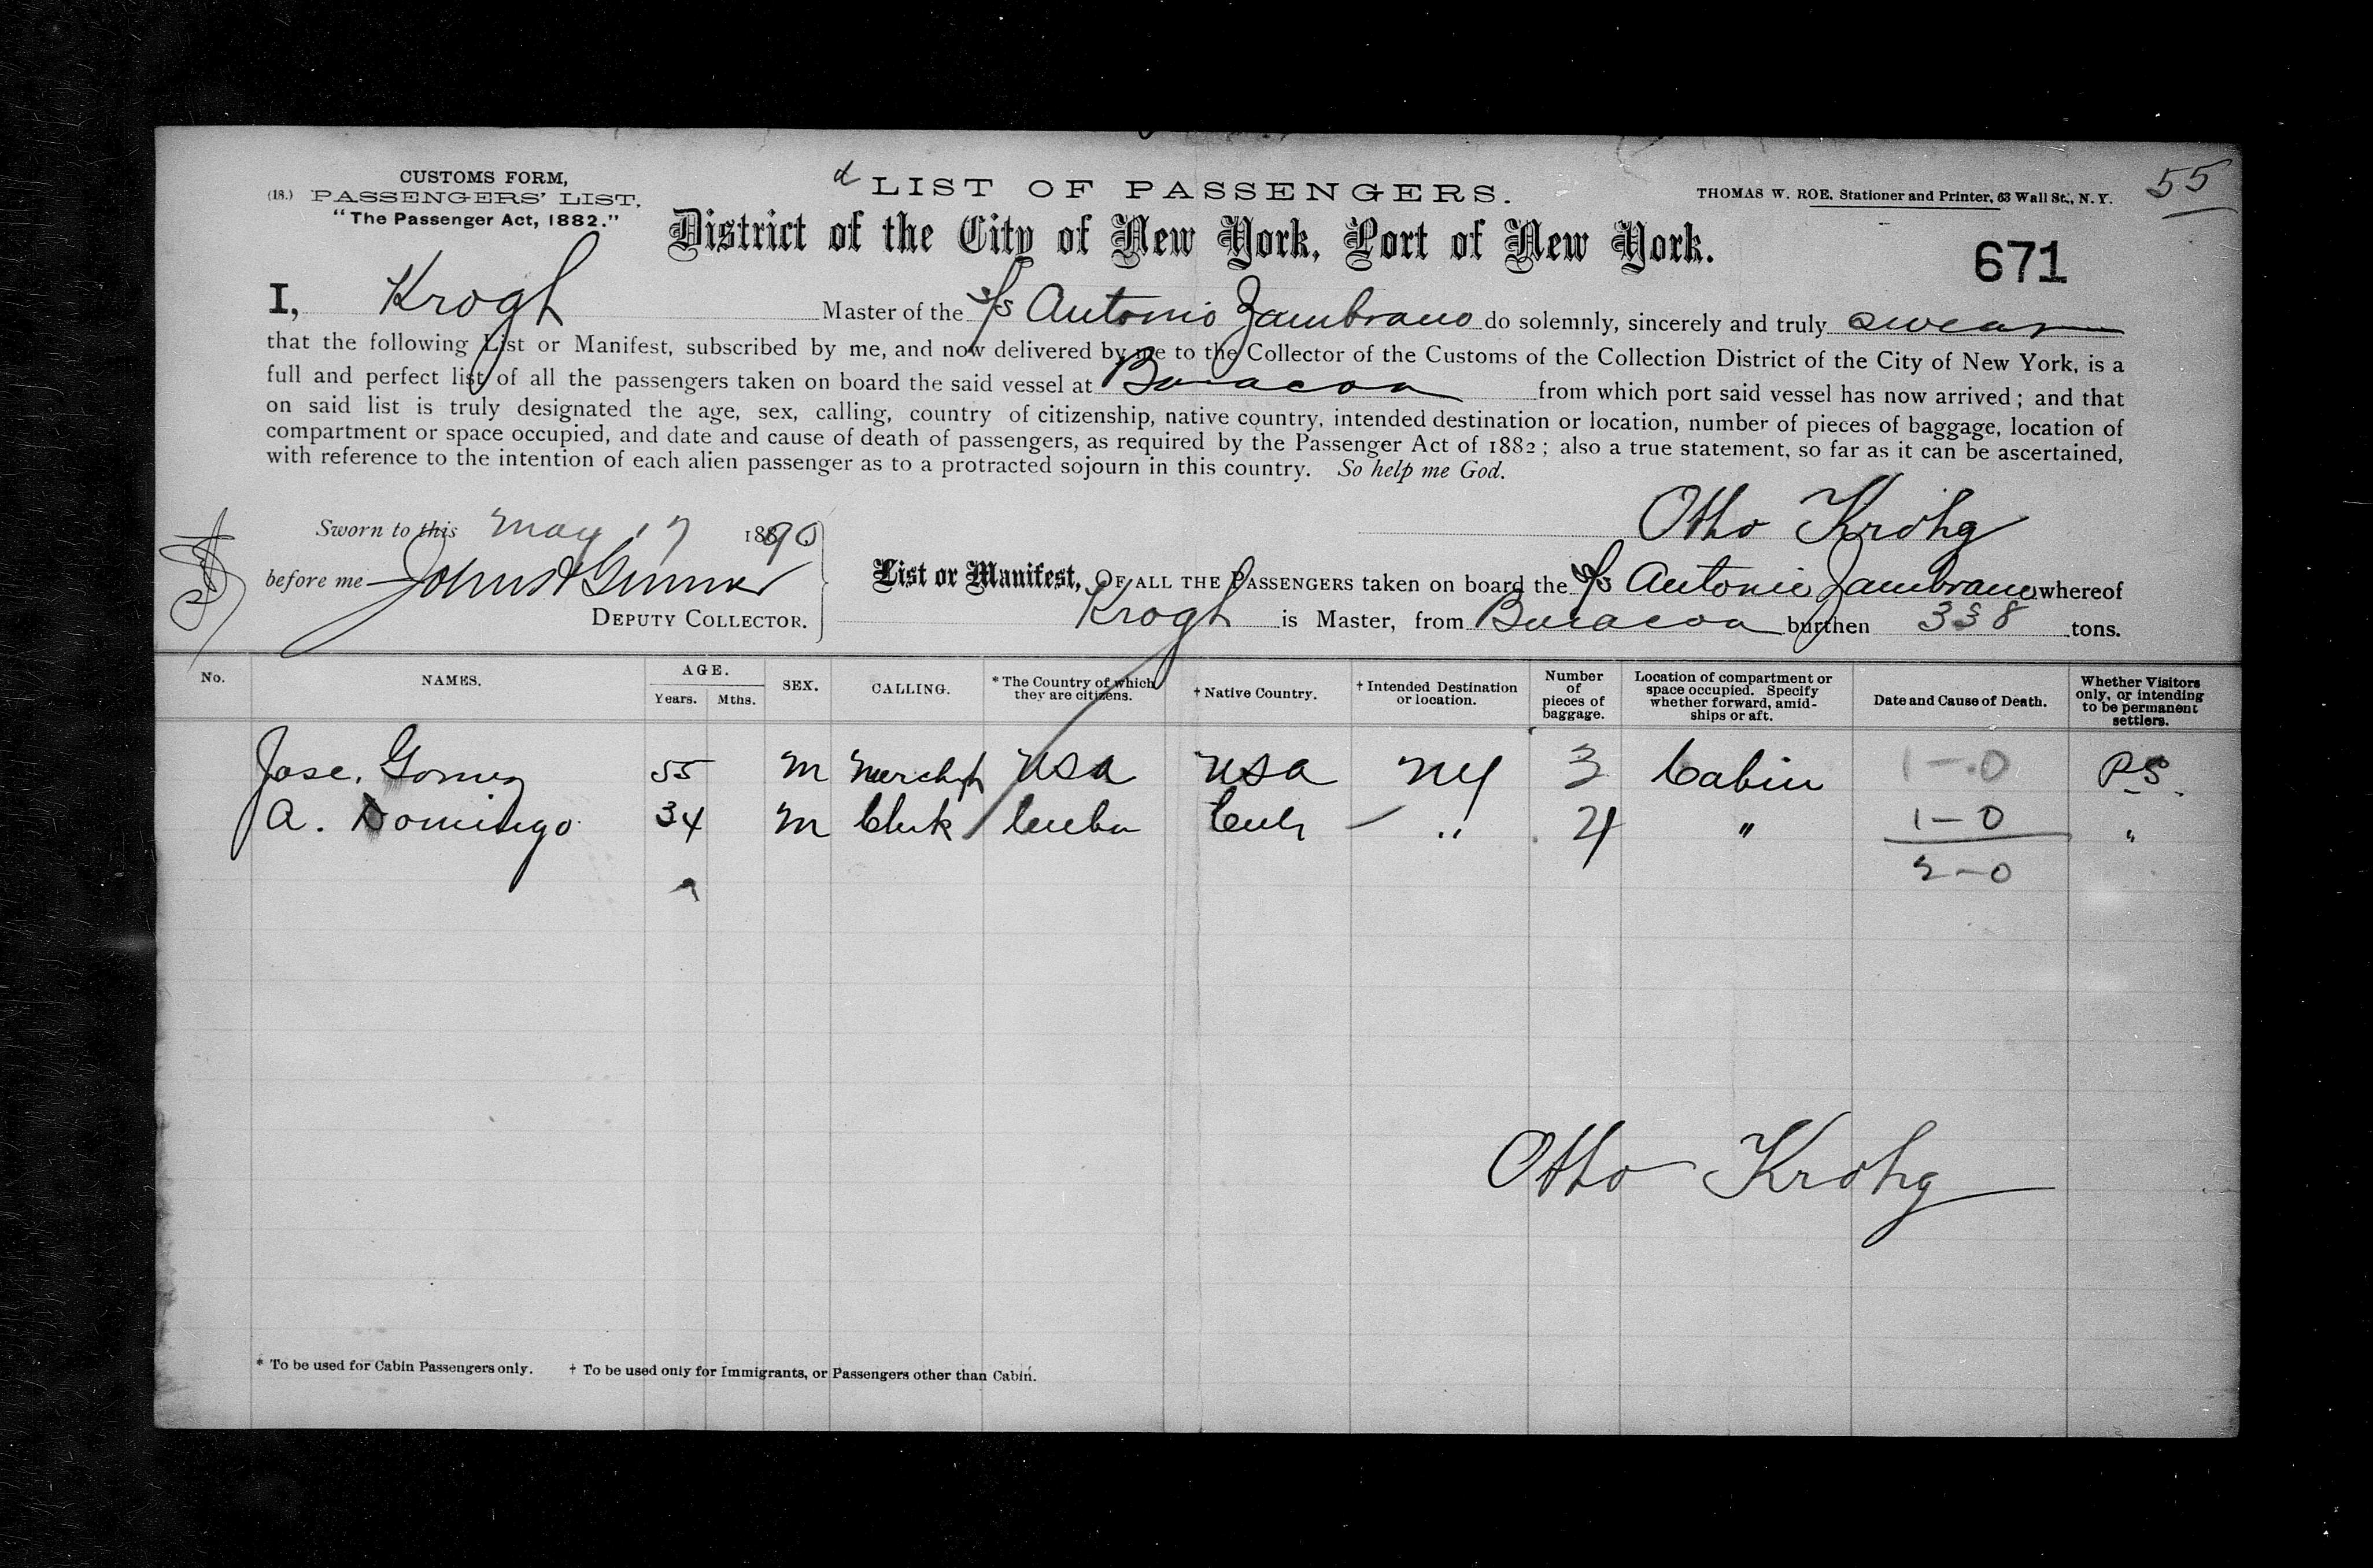 CUSTOMS FORM,
(18.) PASSENGERS' LIST.
"The Passenger Act, 1882."
LIST OF PASSENGERS.
THOMAS W. ROE, Stationer and Printer, 63 Wall St., N. Y.
55
District of the City of New York, Port of New York.
671
I, Krogh Master of the S/s Antonio Zambrano do solemnly, sincerely and truly swear
that the following List or Manifest, subscribed by me, and now delivered by me to the Collector of the Customs of the Collection District of the City of New York, is a
full and perfect list of all the passengers taken on board the said vessel at Baracoa from which port said vessel has now arrived; and that
on said list is truly designated the age, sex, calling, country of citizenship, native country, intended destination or location, number of pieces of baggage, location of
compartment or space occupied, and date and cause of death of passengers, as required by the Passenger Act of 1882; also a true statement, so far as it can be ascertained,
with reference to the intention of each alien passenger as to a protracted sojourn in this country. So help me God.
Otto Krohg
Sworn to this May 17 1890
before me
DEPUTY COLLECTOR.
List or Manifest, OF ALL THE PASSENGERS taken on board the S/s Antonio Zambrano whereof
Krogh is Master, from Baracoa burthen 338 tons.
No. NAMES. AGE. Years. Mths. SEX. CALLING. * The Country of which they are citizens. † Native Country. † Intended Destination or location. Number of pieces of baggage. Location of compartment or space occupied. Specify whether forward, amidships or aft. Date and Cause of Death. Whether Visitors only, or intending to be permanent settlers.
Jose. Gomez 55 M Mercht USA USA NY 3 Cabin 1-0 PS
A. Domingo 34 M Clerk Cuba Cuba " 4 " 1-0 "
2-0
Otto Krohg
* To be used for Cabin Passengers only. † To be used only for Immigrants, or Passengers other than Cabin.